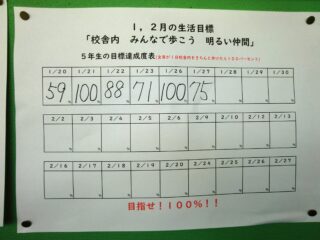 1，2月の生活目標
「校舎内　みんなで歩こう　明るい仲間」
5年生の目標達成度表(全員が1日校舎内をきちんと歩けたら100パーセント)
1/20 1/21 1/22 1/23 1/26 1/27 1/28 1/29 1/30
59% 100% 88% 71% 100% 75% % % %
2/2 2/3 2/4 2/5 2/6 2/9 2/10 2/12 2/13
% % % % % % % % %
2/16 2/17 2/18 2/19 2/20 2/24 2/25 2/26 2/27
% % % % % % % % %
目指せ！100％！！